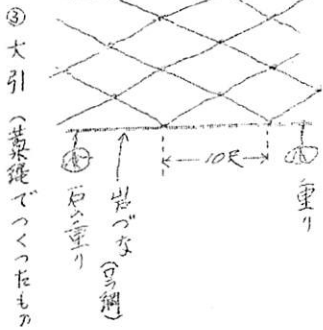 重り
10尺
岩づな
石の重り
③ 大引 (藁縄でつくったもの